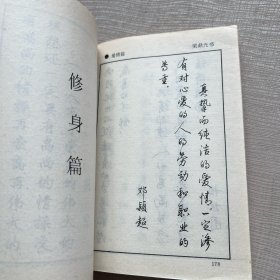 修身篇
●爱情篇
梁鼎光书
真挚而纯洁的爱情一定渗
有对心爱的人的劳动和职业的
尊重。
邓颖超
179